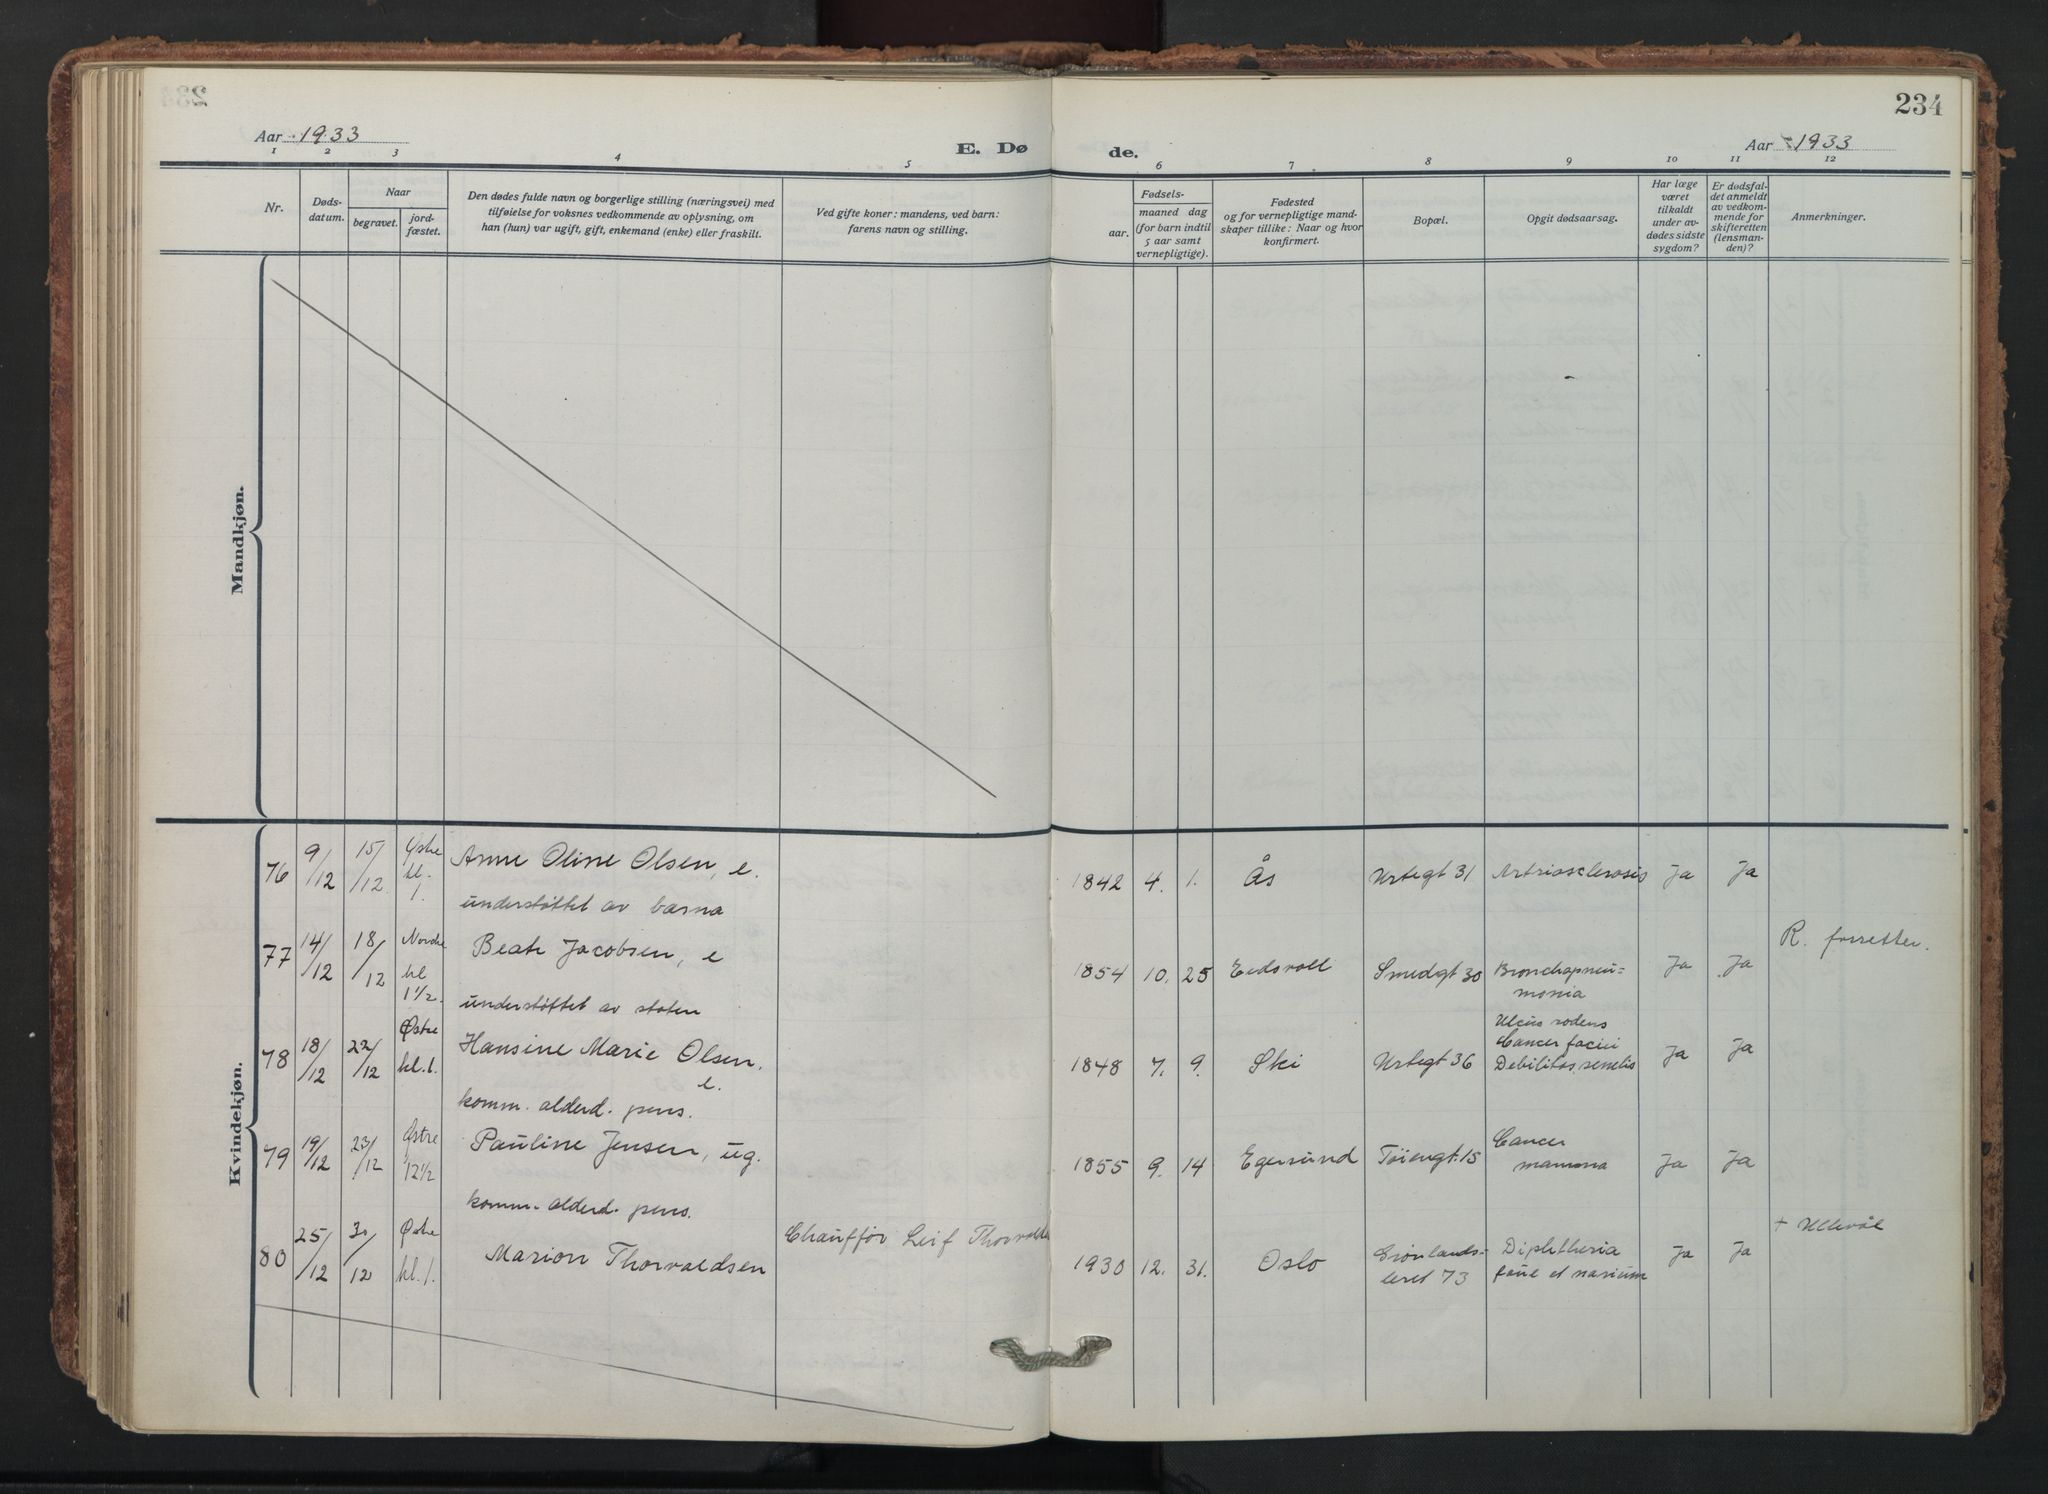 234
Aar 1933
E. Dø
de.
Aar 1933
1 2 3 4 5 6 7 8 9 10 11 12
Nr.
Døds-
datum.
Naar
begravet.
jord-
fæstet.
Den dødes fulde navn og borgerlige stilling (næringsvei) med
tilføielse for voksnes vedkommende av oplysning, om
han (hun) var ugift, gift, enkemand (enke) eller fraskilt.
Ved gifte koner: mandens, ved barn:
farens navn og stilling.
Fødsels-
aar.
maaned dag
(for barn indtil
5 aar samt
vernepligtige).
Fødested
og for vernepligtige mand-
skaper tillike: Naar og hvor
konfirmert.
Bopæl.
Opgit dødsaarsag.
Har læge
været
tilkaldt
under av-
dødes sidste
sygdom?
Er dødsfal-
det anmeldt
av vedkom-
mende for
skifteretten
(lensman-
den)?
Anmerkninger.
Mandkjøn.
Kvindekjøn.
76 9/12 15/12 Østre kl. 1. Anne Oline Olsen, e. 1842 4. 1. Ås Urtegt 31 Artriosclerosis Ja Ja
understøttet av barna
77 14/12 18/12 Nordre kl 1½. Beate Jacobsen, e 1854 10. 25 Eidsvoll Smedgt 30 Bronchopneu- Ja Ja R. forretter.
monia
understøttet av staten
78 18/12 22/12 Østre kl. 1. Hansine Marie Olsen, e. 1848 7. 9. Ski Urtegt 36 Ulcus rodens
Cancer faciei
Debilitas senilis Ja Ja
komm. alderd. pens.
79 19/12 23/12 Østre 12½ Pauline Jensen, ug. 1855 9. 14 Egersund Tøiengt. 15 Cancer
mamma Ja Ja
komm. alderd. pens.
80 25/12 30/12 Østre kl. 1. Marion Thorvaldsen Chauffør Leif Thorvalds 1930 12. 31. Oslo Grønlands- Diphtheria Ja Ja + Ullevål
leret 73 et narium